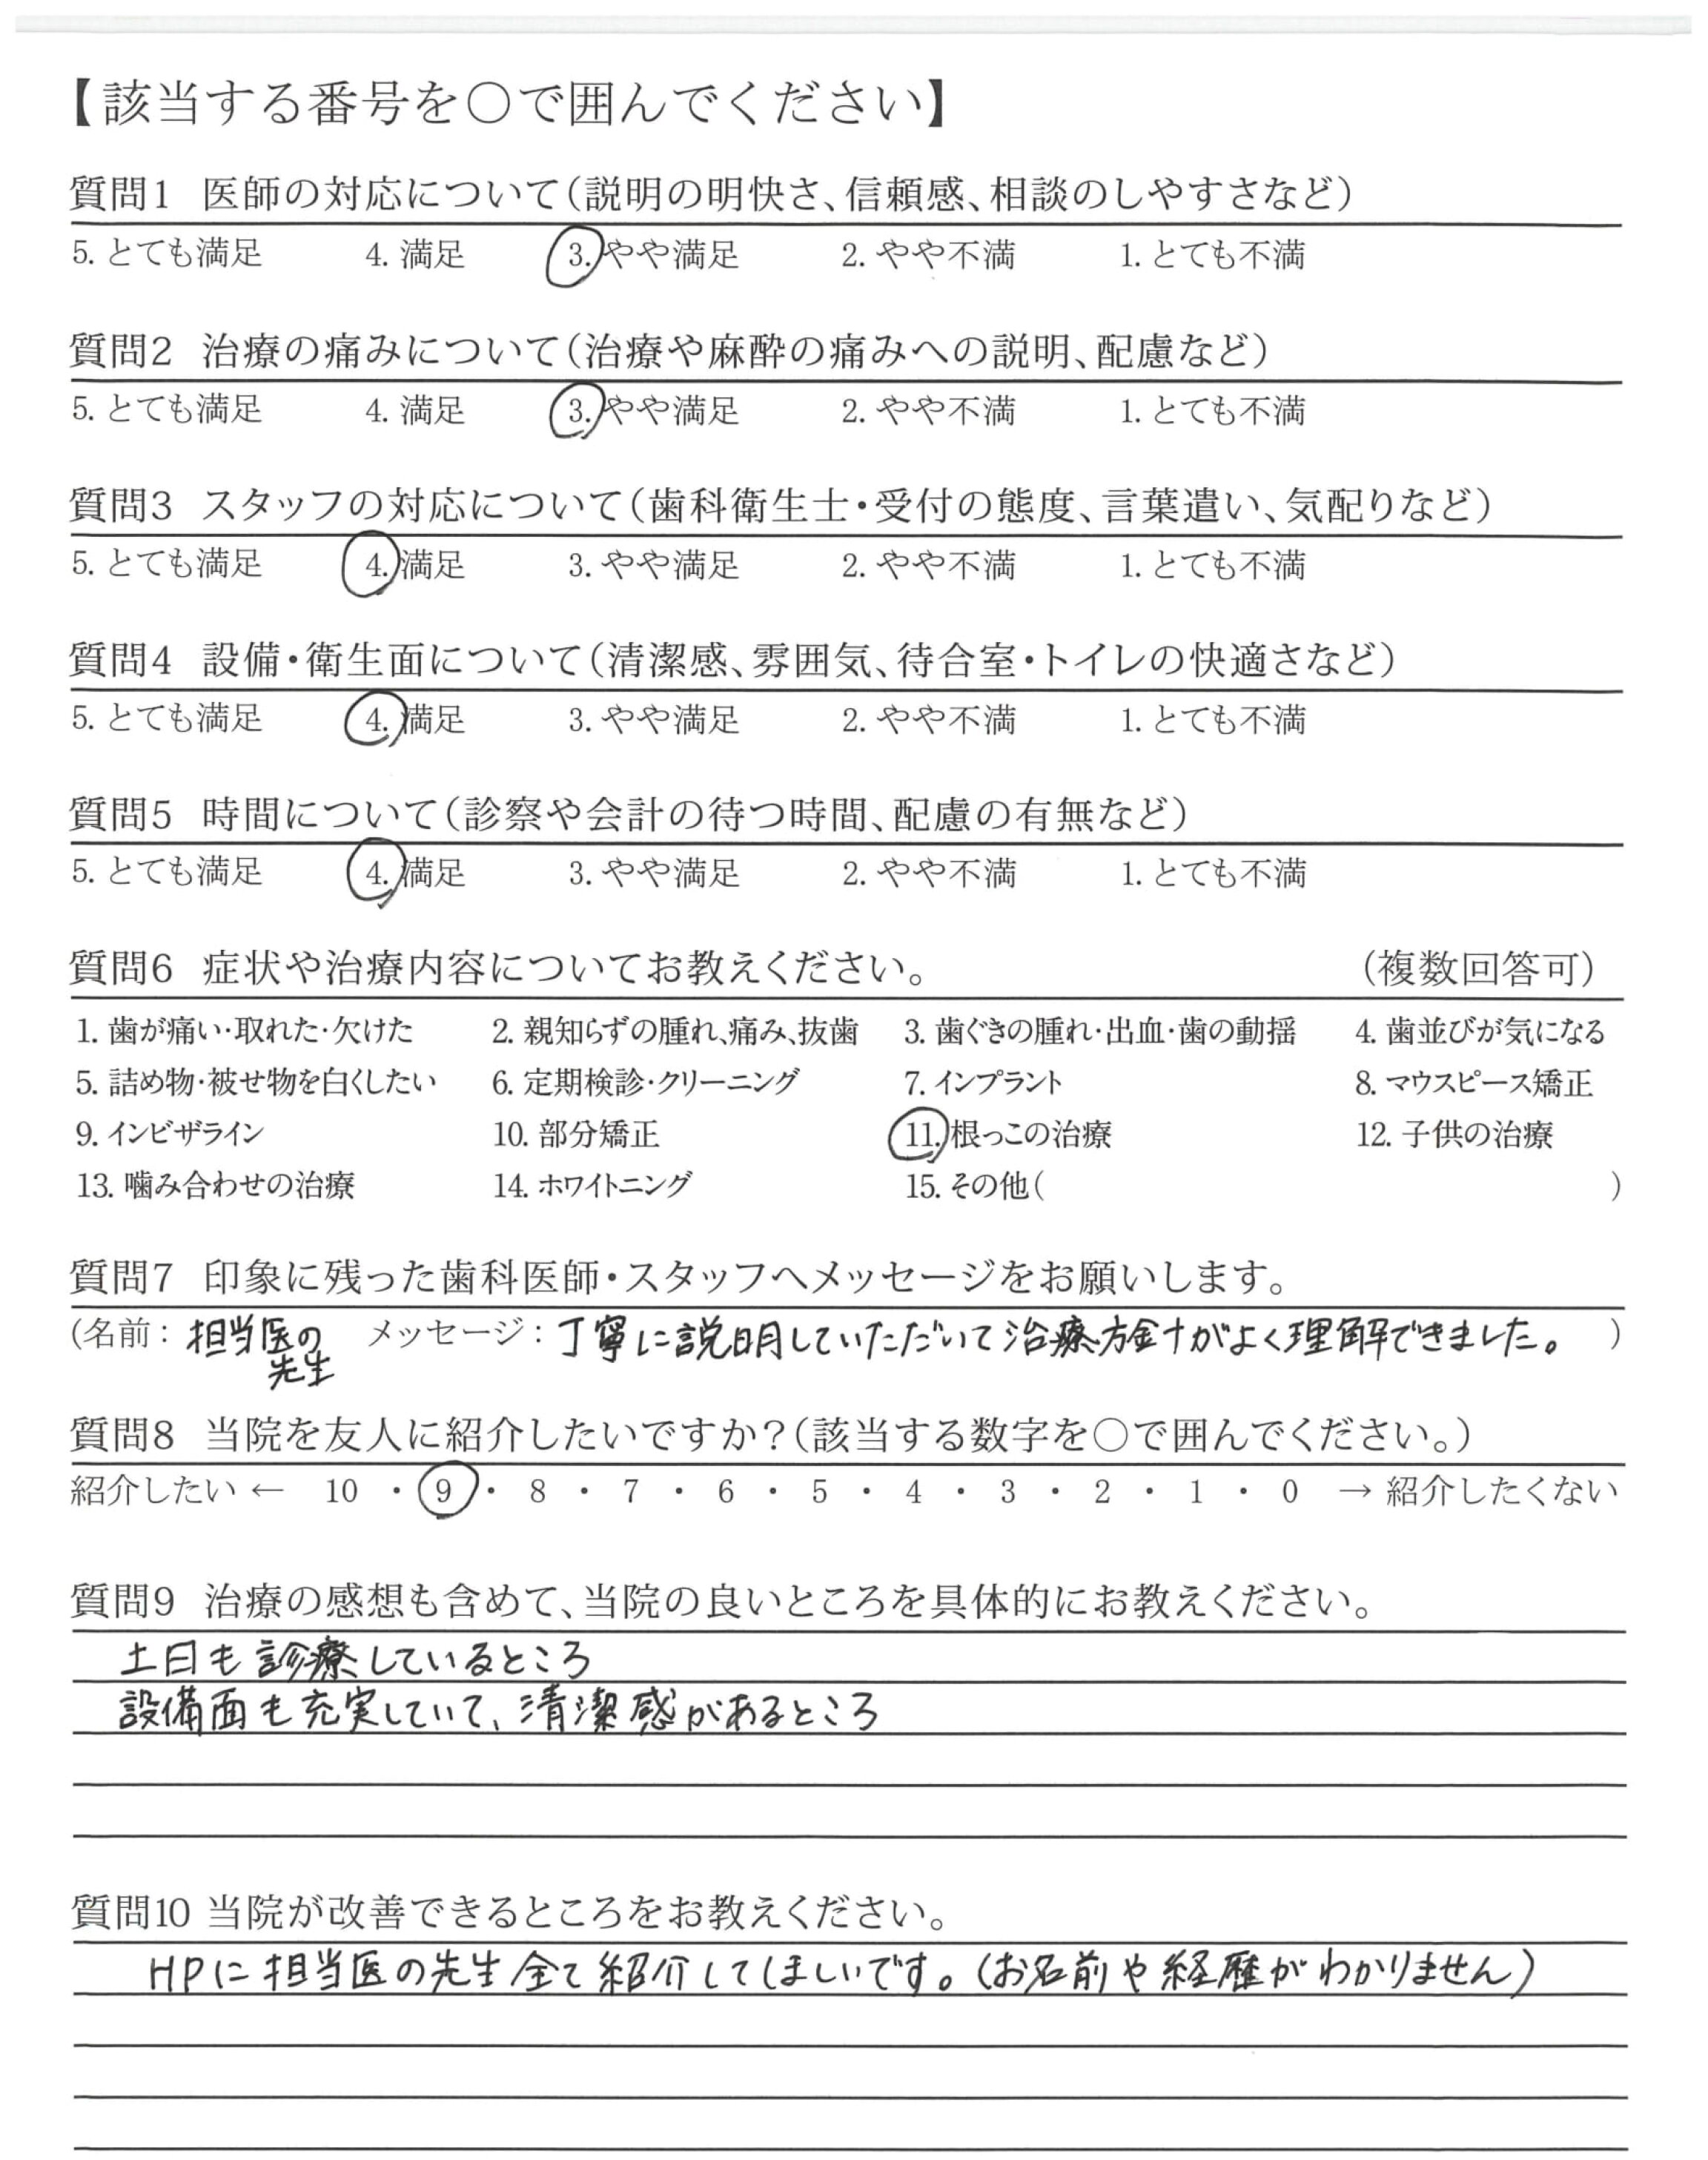 【該当する番号を○で囲んでください】
質問1 医師の対応について(説明の明快さ、信頼感、相談のしやすさなど)
5. とても満足 4. 満足 3. やや満足 2. やや不満 1. とても不満
質問2 治療の痛みについて(治療や麻酔の痛みへの説明、配慮など)
5. とても満足 4. 満足 3. やや満足 2. やや不満 1. とても不満
質問3 スタッフの対応について(歯科衛生士・受付の態度、言葉遣い、気配りなど)
5. とても満足 4. 満足 3. やや満足 2. やや不満 1. とても不満
質問4 設備・衛生面について(清潔感、雰囲気、待合室・トイレの快適さなど)
5. とても満足 4. 満足 3. やや満足 2. やや不満 1. とても不満
質問5 時間について(診察や会計の待つ時間、配慮の有無など)
5. とても満足 4. 満足 3. やや満足 2. やや不満 1. とても不満
質問6 症状や治療内容についてお教えください。 (複数回答可)
1. 歯が痛い・取れた・欠けた 2. 親知らずの腫れ、痛み、抜歯 3. 歯ぐきの腫れ・出血・歯の動揺 4. 歯並びが気になる
5. 詰め物・被せ物を白くしたい 6. 定期検診・クリーニング 7. インプラント 8. マウスピース矯正
9. インビザライン 10. 部分矯正 11. 根っこの治療 12. 子供の治療
13. 噛み合わせの治療 14. ホワイトニング 15. その他( )
質問7 印象に残った歯科医師・スタッフへメッセージをお願いします。
(名前: 担当医の メッセージ: 丁寧に説明していただいて治療方針がよく理解できました。 )
先生
質問8 当院を友人に紹介したいですか?(該当する数字を○で囲んでください。)
紹介したい ← 10 ・ 9 ・ 8 ・ 7 ・ 6 ・ 5 ・ 4 ・ 3 ・ 2 ・ 1 ・ 0 → 紹介したくない
質問9 治療の感想も含めて、当院の良いところを具体的にお教えください。
土日も診療しているところ
設備面も充実していて、清潔感があるところ
質問10 当院が改善できるところをお教えください。
HPに担当医の先生全て紹介してほしいです。(お名前や経歴がわかりません)